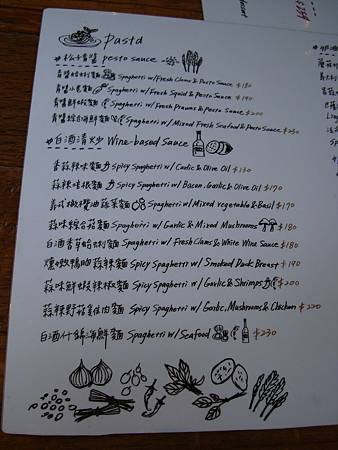 pasta
#松子青醬 pesto sauce
青醬蛤蜊麵 Spaghetti w/Fresh Clams & Pesto Sauce $180
青醬小卷麵 Spaghetti w/Fresh Squid & Pesto Sauce $190
青醬鮮蝦麵 Spaghetti w/Fresh Prawns & Pesto Sauce $200
青醬綜合海鮮麵 Spaghetti w/Mixed Fresh Seafood & Pesto Sauce $230
#白酒清炒 Wine-based Sauce
香蒜辣味麵 Spicy Spaghetti w/Garlic & Olive Oil $130
蒜辣培根麵 Spicy Spaghetti w/Bacon, Garlic & Olive Oil $170
義式橄欖油蔬菜麵 Spaghetti w/Mixed vegetable & Basil $170
蒜味綜合菇麵 Spaghetti w/Garlic & Mixed Mushrooms $180
白酒香草蛤蜊麵 Spaghetti w/Fresh Clams & White Wine Sauce $180
燻嫩鴨胸蒜辣麵 Spicy Spaghetti w/Smoked Duck Breast $190
蒜味鮮蝦辣椒麵 Spicy Spaghetti w/Garlic & Shrimps $200
蒜辣野菇雞肉麵 Spicy Spaghetti w/Garlic, Mushrooms & Chicken $200
白酒什錦海鮮麵 Spaghetti w/Seafood $230